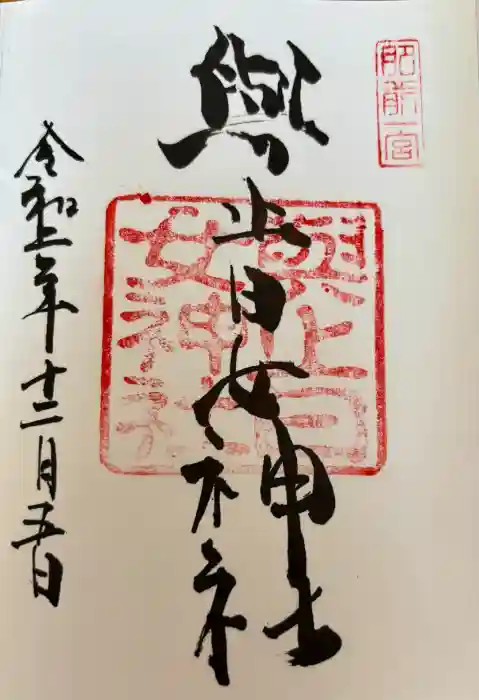 肥前一宮
與止日女神社
與止日
女神社
令和六年十二月五日